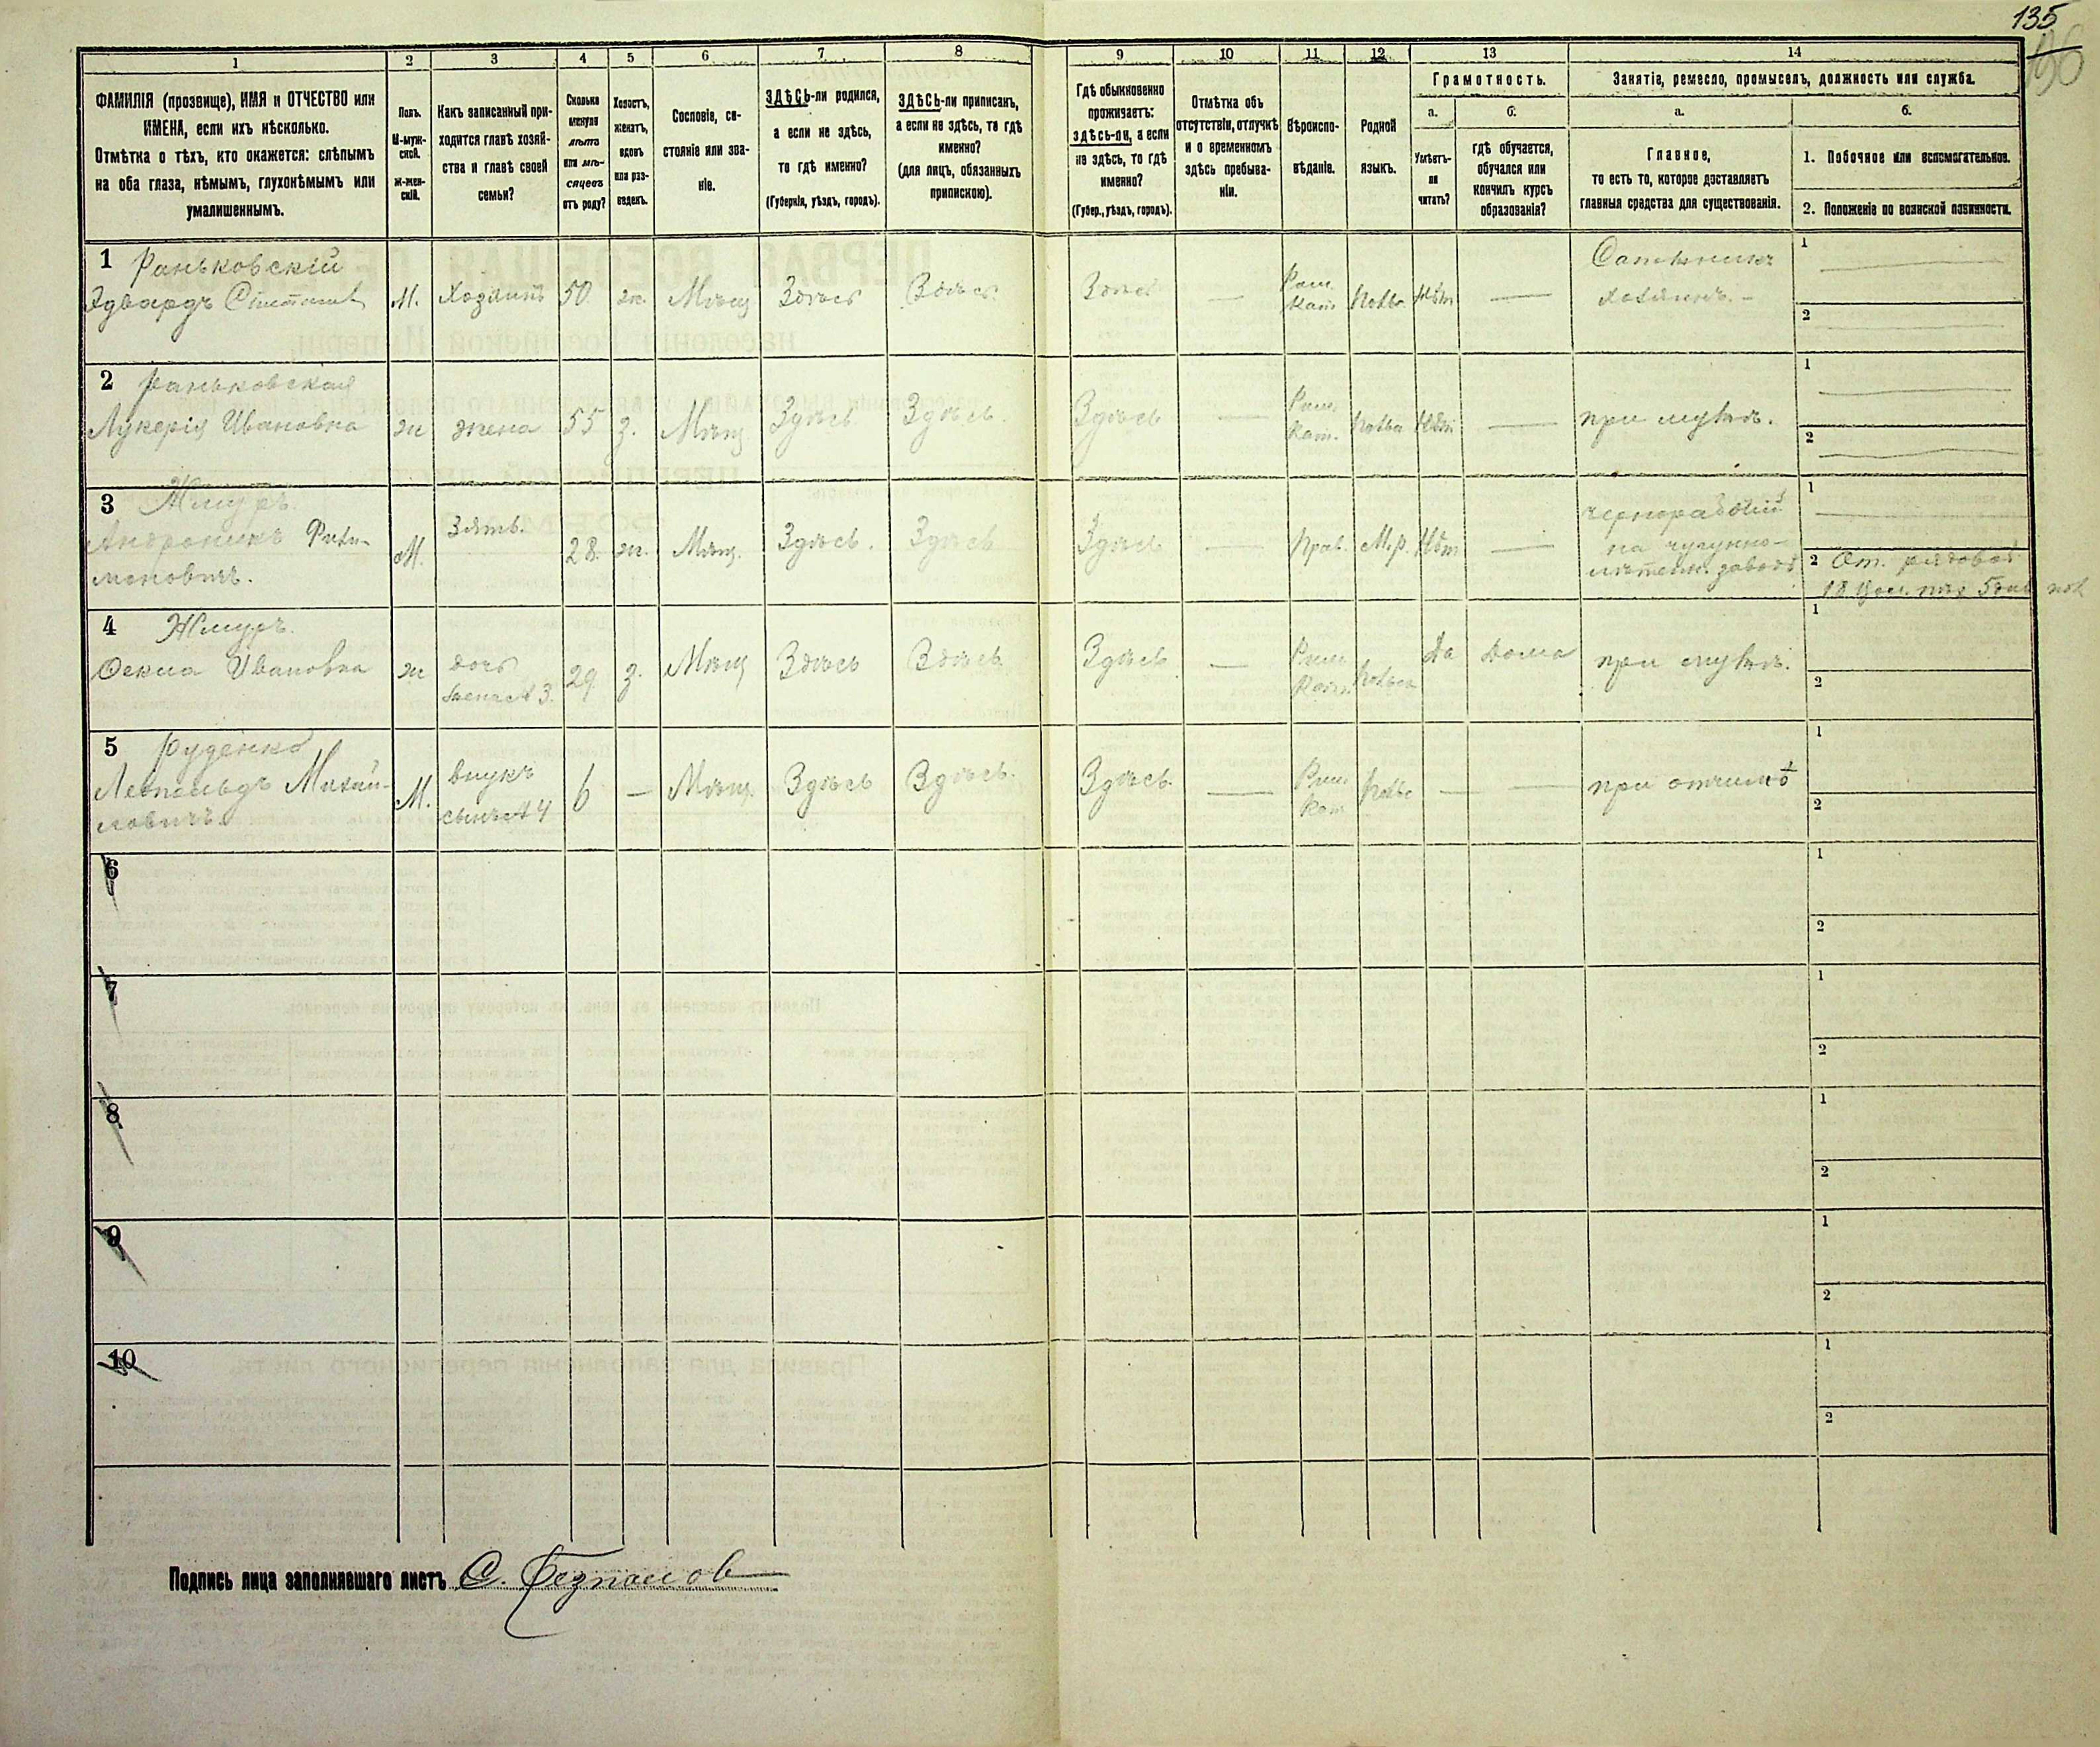 135
196
1
2
3
4
5
6
7
8
9
10
11
12
13
14
ФАМИЛІЯ (прозвище), ИМЯ и ОТЧЕСТВО или
ИМЕНА, если ихъ нѣсколько.
Отмѣтка о тѣхъ, кто окажется: слѣпымъ
на оба глаза, нѣмымъ, глухонѣмымъ или
умалишеннымъ.
Полъ.
М-муж-
ской.
ж-жен-
скій.
Какъ записанный при-
ходится главѣ хозяй-
ства и главѣ своей
семьи?
Сколько
минуло
лѣтъ
или мѣ-
сяцевъ
отъ роду?
Холостъ,
женатъ,
вдовъ
или раз-
веденъ.
Сословіе, со-
стояніе или зва-
ніе.
ЗДѢСЬ-ли родился,
а если не здѣсь,
то гдѣ именно?
(Губернія, уѣздъ, городъ).
ЗДѢСЬ-ли приписанъ,
а если не здѣсь, то гдѣ
именно?
(для лицъ, обязанныхъ
припискою).
Гдѣ обыкновенно
проживаетъ:
здѣсь-ли, а если
не здѣсь, то гдѣ
именно?
(Губер., уѣздъ, городъ).
Отмѣтка объ
отсутствіи, отлучкѣ
и о временномъ
здѣсь пребыва-
ніи.
Вѣроиспо-
вѣданіе.
Родной
языкъ.
Грамотность.
а.
Умѣетъ-
ли
читать?
б.
гдѣ обучается,
обучался или
кончилъ курсъ
образованія?
Занятіе, ремесло, промыселъ, должность или служба.
а.
Главное,
то есть то, которое доставляетъ
главныя средства для существованія.
б.
1. Побочное или вспомогательное.
2. Положеніе по воинской повинности.
1 Раньковскій
Эдвардъ
М. Хозяинъ 50 ж. Мѣщ Здѣсь Здѣсь Здѣсь — Рим. Кат. Нѣт —
хозяинъ. —
1
2
2 Раньковская
Лукерія Ивановна ж жена 55 з. Мѣщ Здѣсь Здѣсь. Здѣсь — Рим. Кат. Нѣт — при мужѣ.
1
2
3 Жмуръ.
Андроникъ
моновичъ.
М. Зять. 28. ж. Мѣщ. Здѣсь. Здѣсь Здѣсь — Прав. М.р. Нѣт —
чернорабочій
на чугунно-
литейн. заводѣ
1
2
4 Жмуръ.
Ивановна ж дочь
жена №3. 29 з. Мѣщ Здѣсь Здѣсь Здѣсь — Рим Кат. Да Дома при мужѣ.
1
2
5 Руденко
Леопольдъ Михай-
ловичъ.
М. внукъ
сынъ №4 6 — Мѣщ. Здѣсь Здѣсь. Здѣсь. — Рим Кат — — при отчимѣ
1
2
6
1
2
7
1
2
8
1
2
9
1
2
10
1
2
Подпись лица заполнявшаго листъ С.